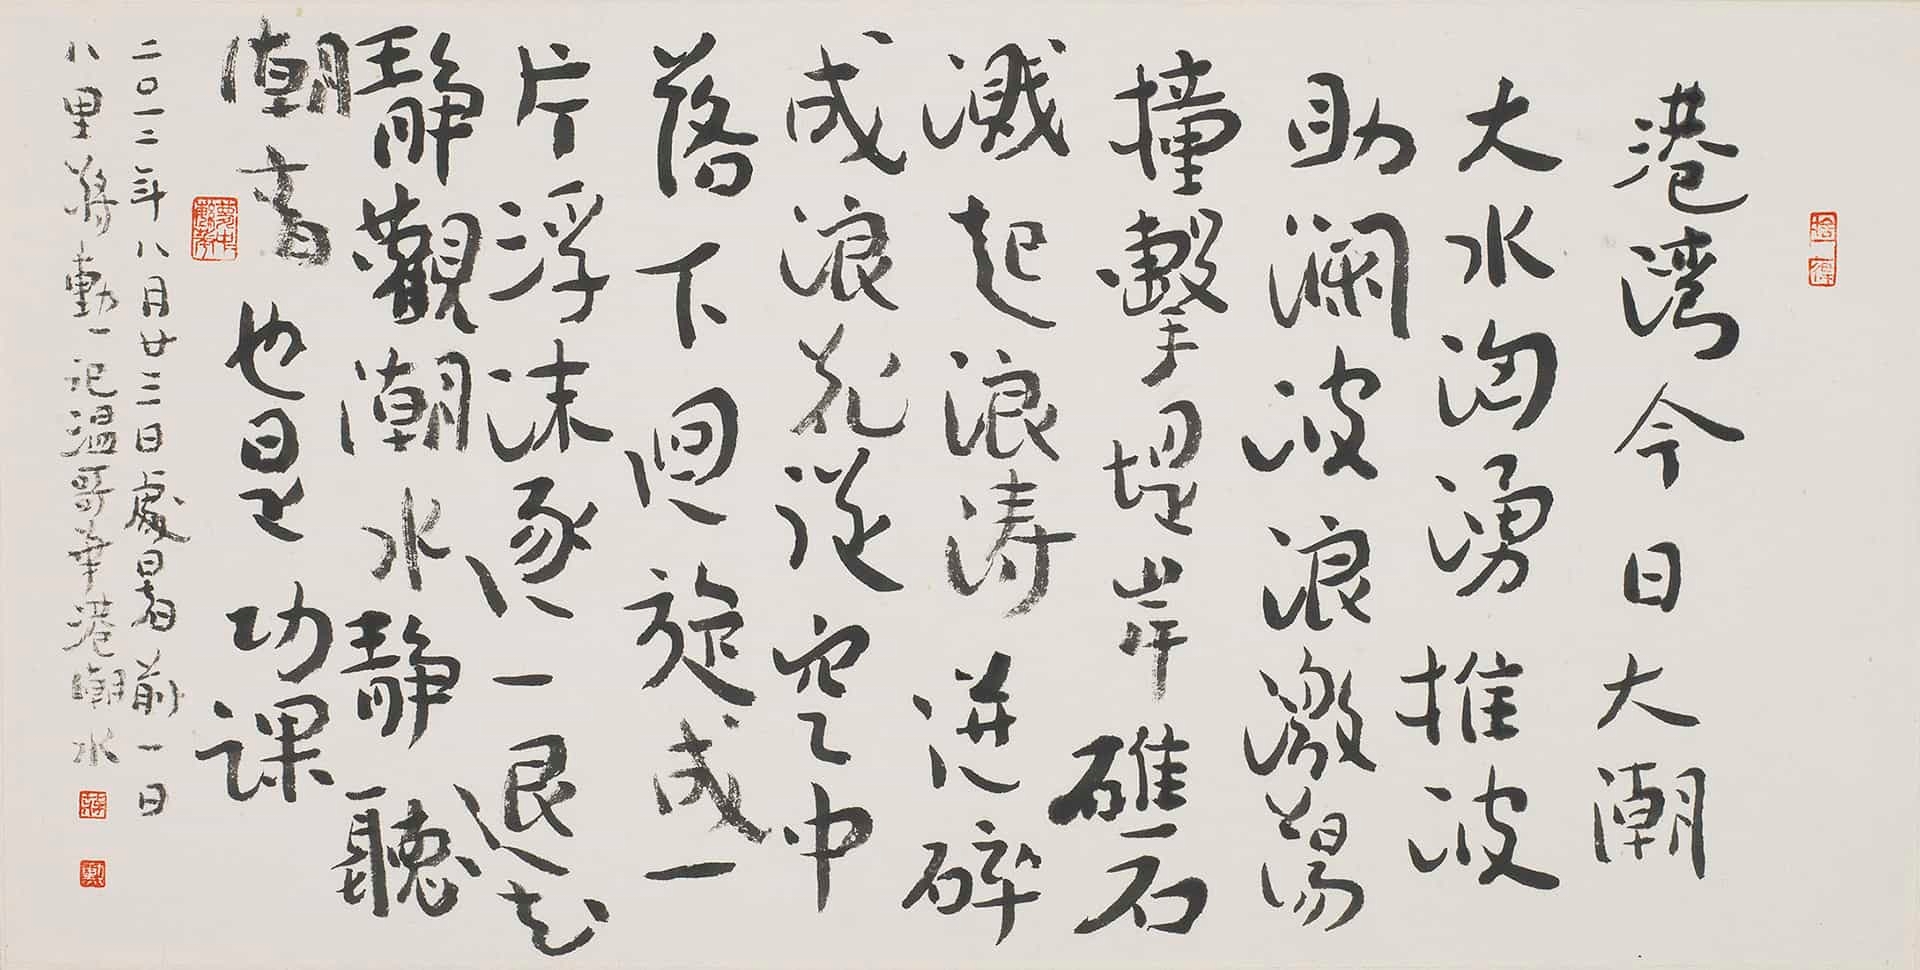 港湾今日大潮
大水洶湧推波
助澜波浪激蕩
撞擊堤岸礁石
濺起浪涛迸碎
成浪花從空中
落下迴旋成一
片浮沫逐一退去
靜觀潮水靜聽
潮音也是功課
二〇一二年八月廿二日處暑前一日
八里蔣勳一記温哥華港潮水
蔣
勳